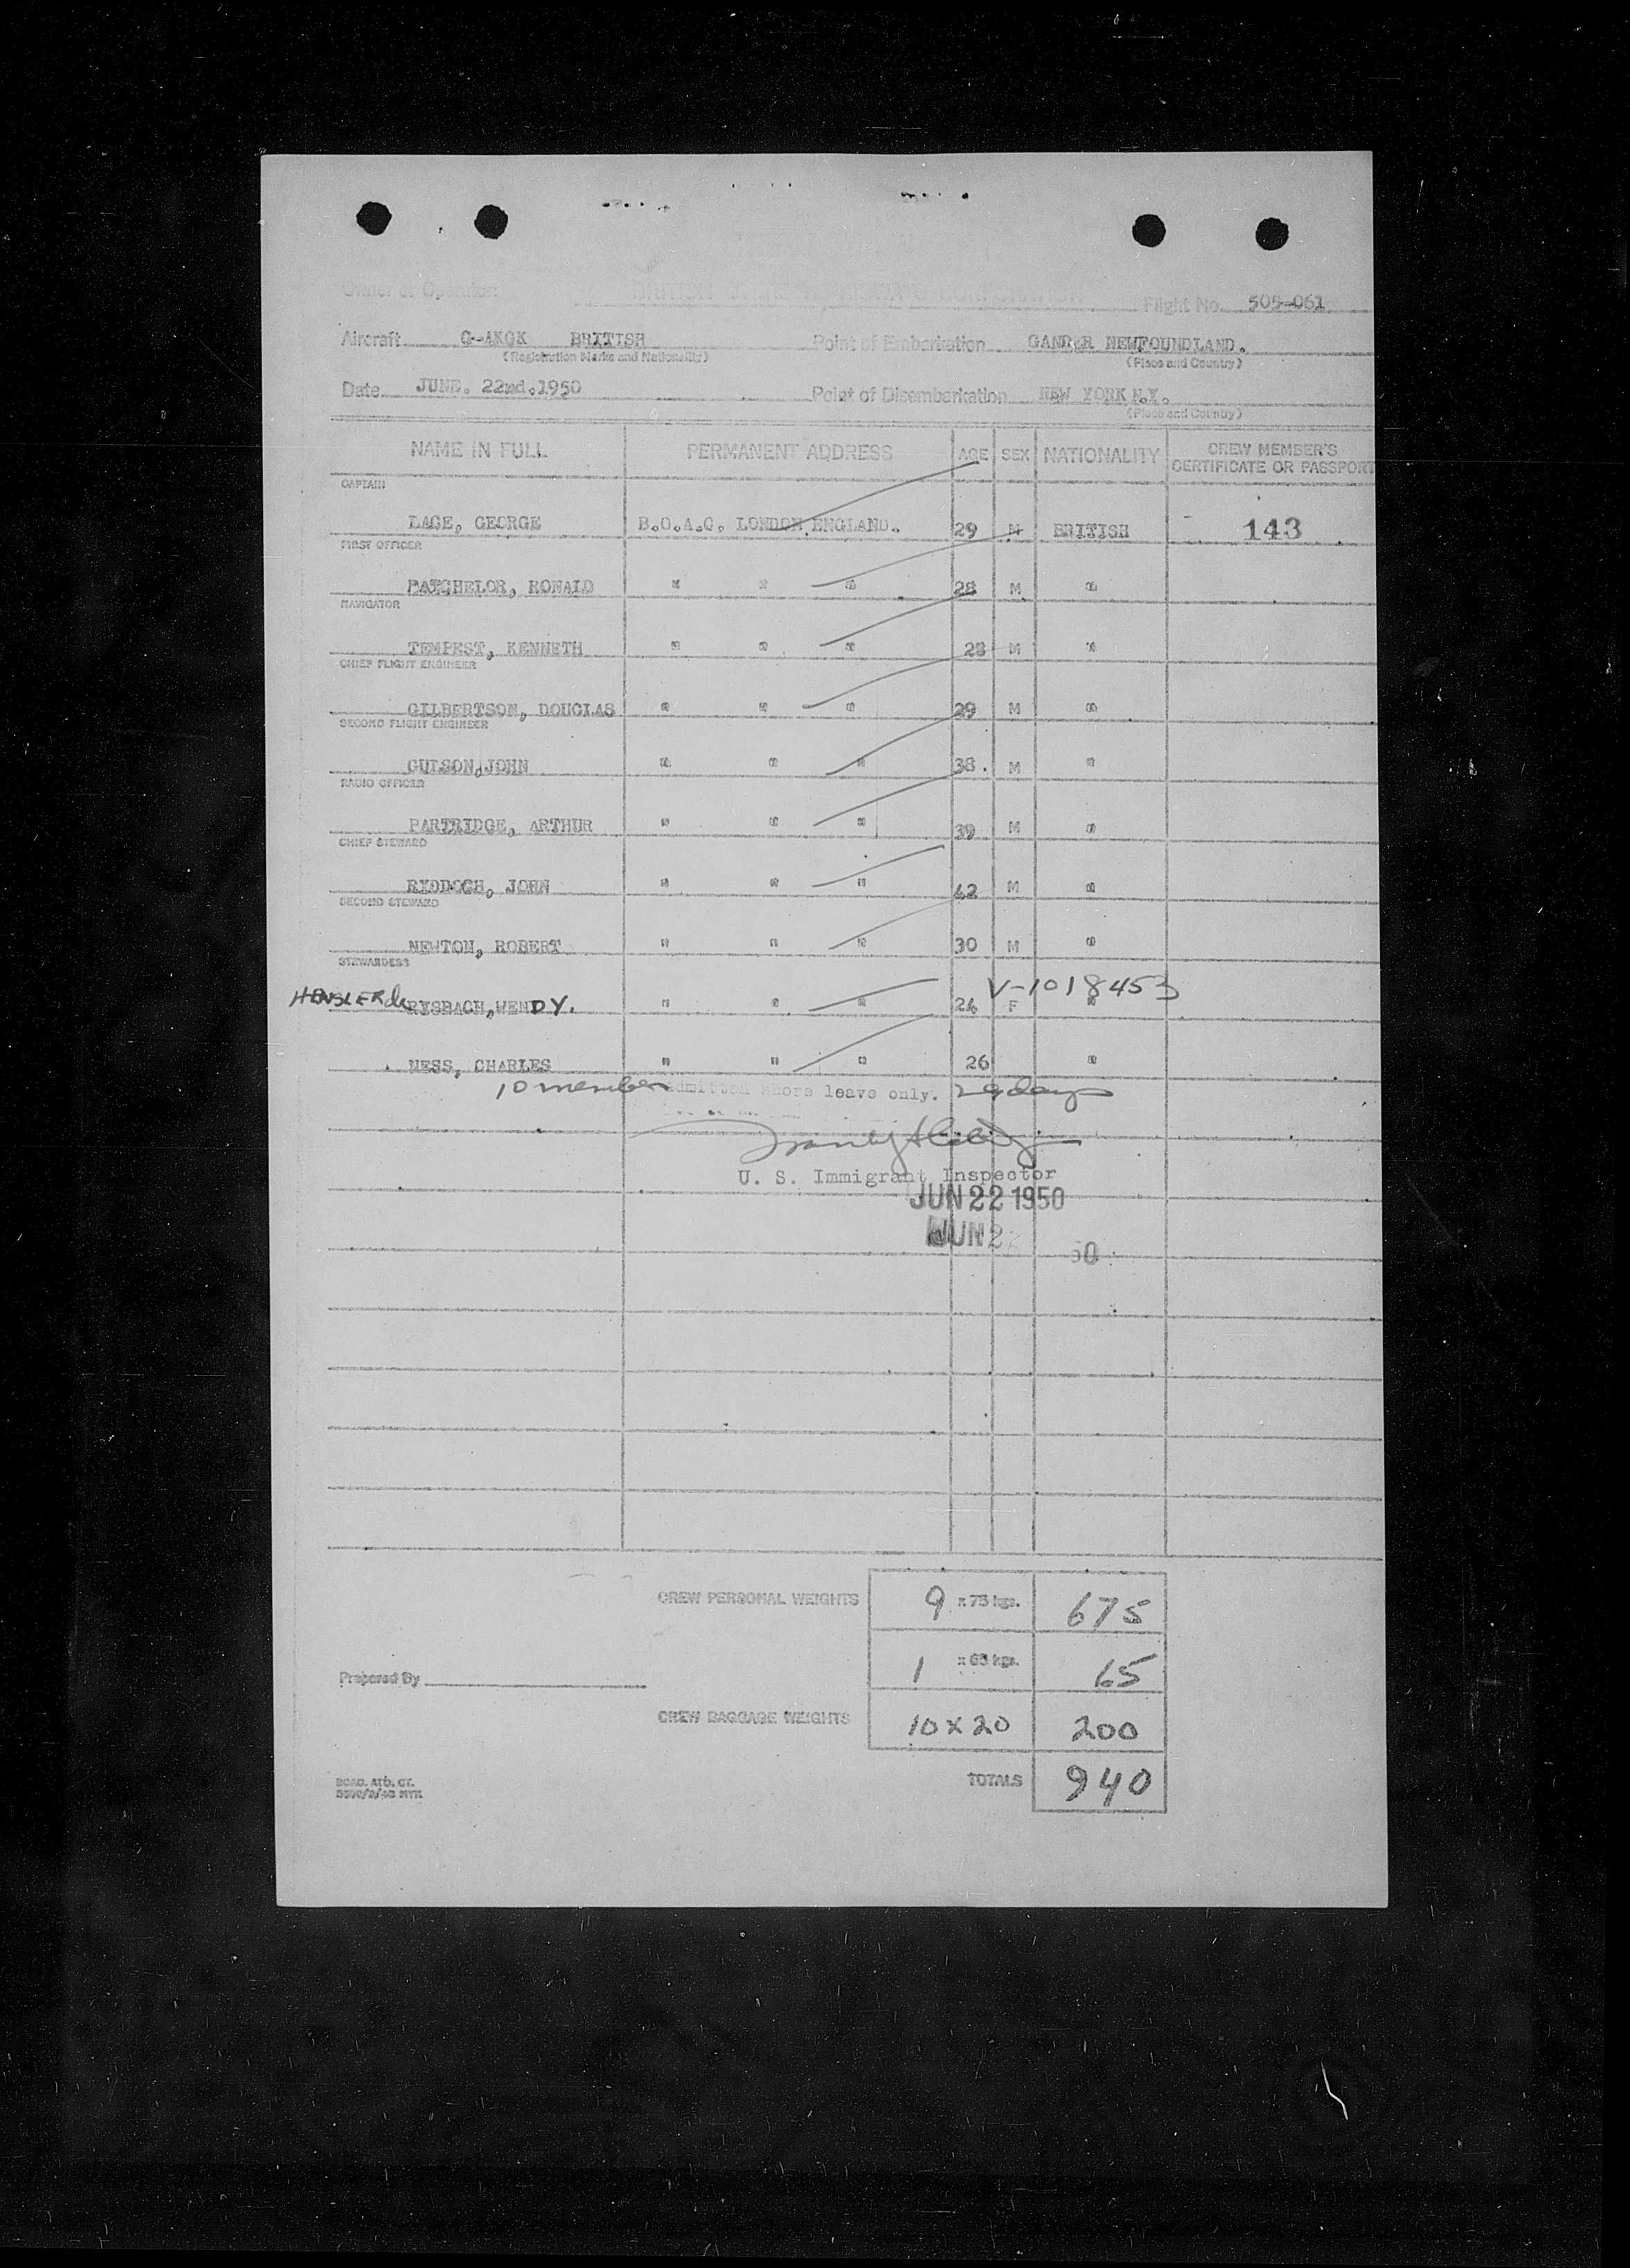 Owner or Operator BRITISH OVERSEAS AIRWAYS CORPORATION Flight No. 505-061
Aircraft G-AKGK BRITISH Point of Embarkation GANDER NEWFOUNDLAND.
(Registration Marks and Nationality) (Place and Country)
Date JUNE. 22nd.1950 Point of Disembarkation NEW YORK N.Y.
(Place and Country)
NAME IN FULL PERMANENT ADDRESS AGE SEX NATIONALITY CREW MEMBER'S CERTIFICATE OR PASSPORT
CAPTAIN
GEORGE B.O.A.C. LONDON ENGLAND. 29 M BRITISH 143
FIRST OFFICER
BATCHELOR, RONALD " " " 28 M "
NAVIGATOR
TEMPEST, KENNETH " " " 28 M "
CHIEF FLIGHT ENGINEER
GILBERTSON, DOUGLAS " " " 29 M "
SECOND FLIGHT ENGINEER
GULSON,JOHN " " " 38. M "
RADIO OFFICER
PARTRIDGE, ARTHUR " " " 39 M "
CHIEF STEWARD
RIDDOCH, JOHN " " " 42 M "
SECOND STEWARD
NEWTON, ROBERT " " " 30 M "
STEWARDESS
V-1018453
de RYSBACH,WENDY. " " " F "
NESS, CHARLES " " " 26 "
10 member admitted shore leave only. 29 days
U. S. Immigrant Inspector
JUN 22 1950
JUN 22 50
CREW PERSONAL WEIGHTS 9 x 75 kgs. 675
1 x 65 kgs. 65
Prepared By
CREW BAGGAGE WEIGHTS 10 x 20 200
TOTALS 940
BOAC. ATD. CT.